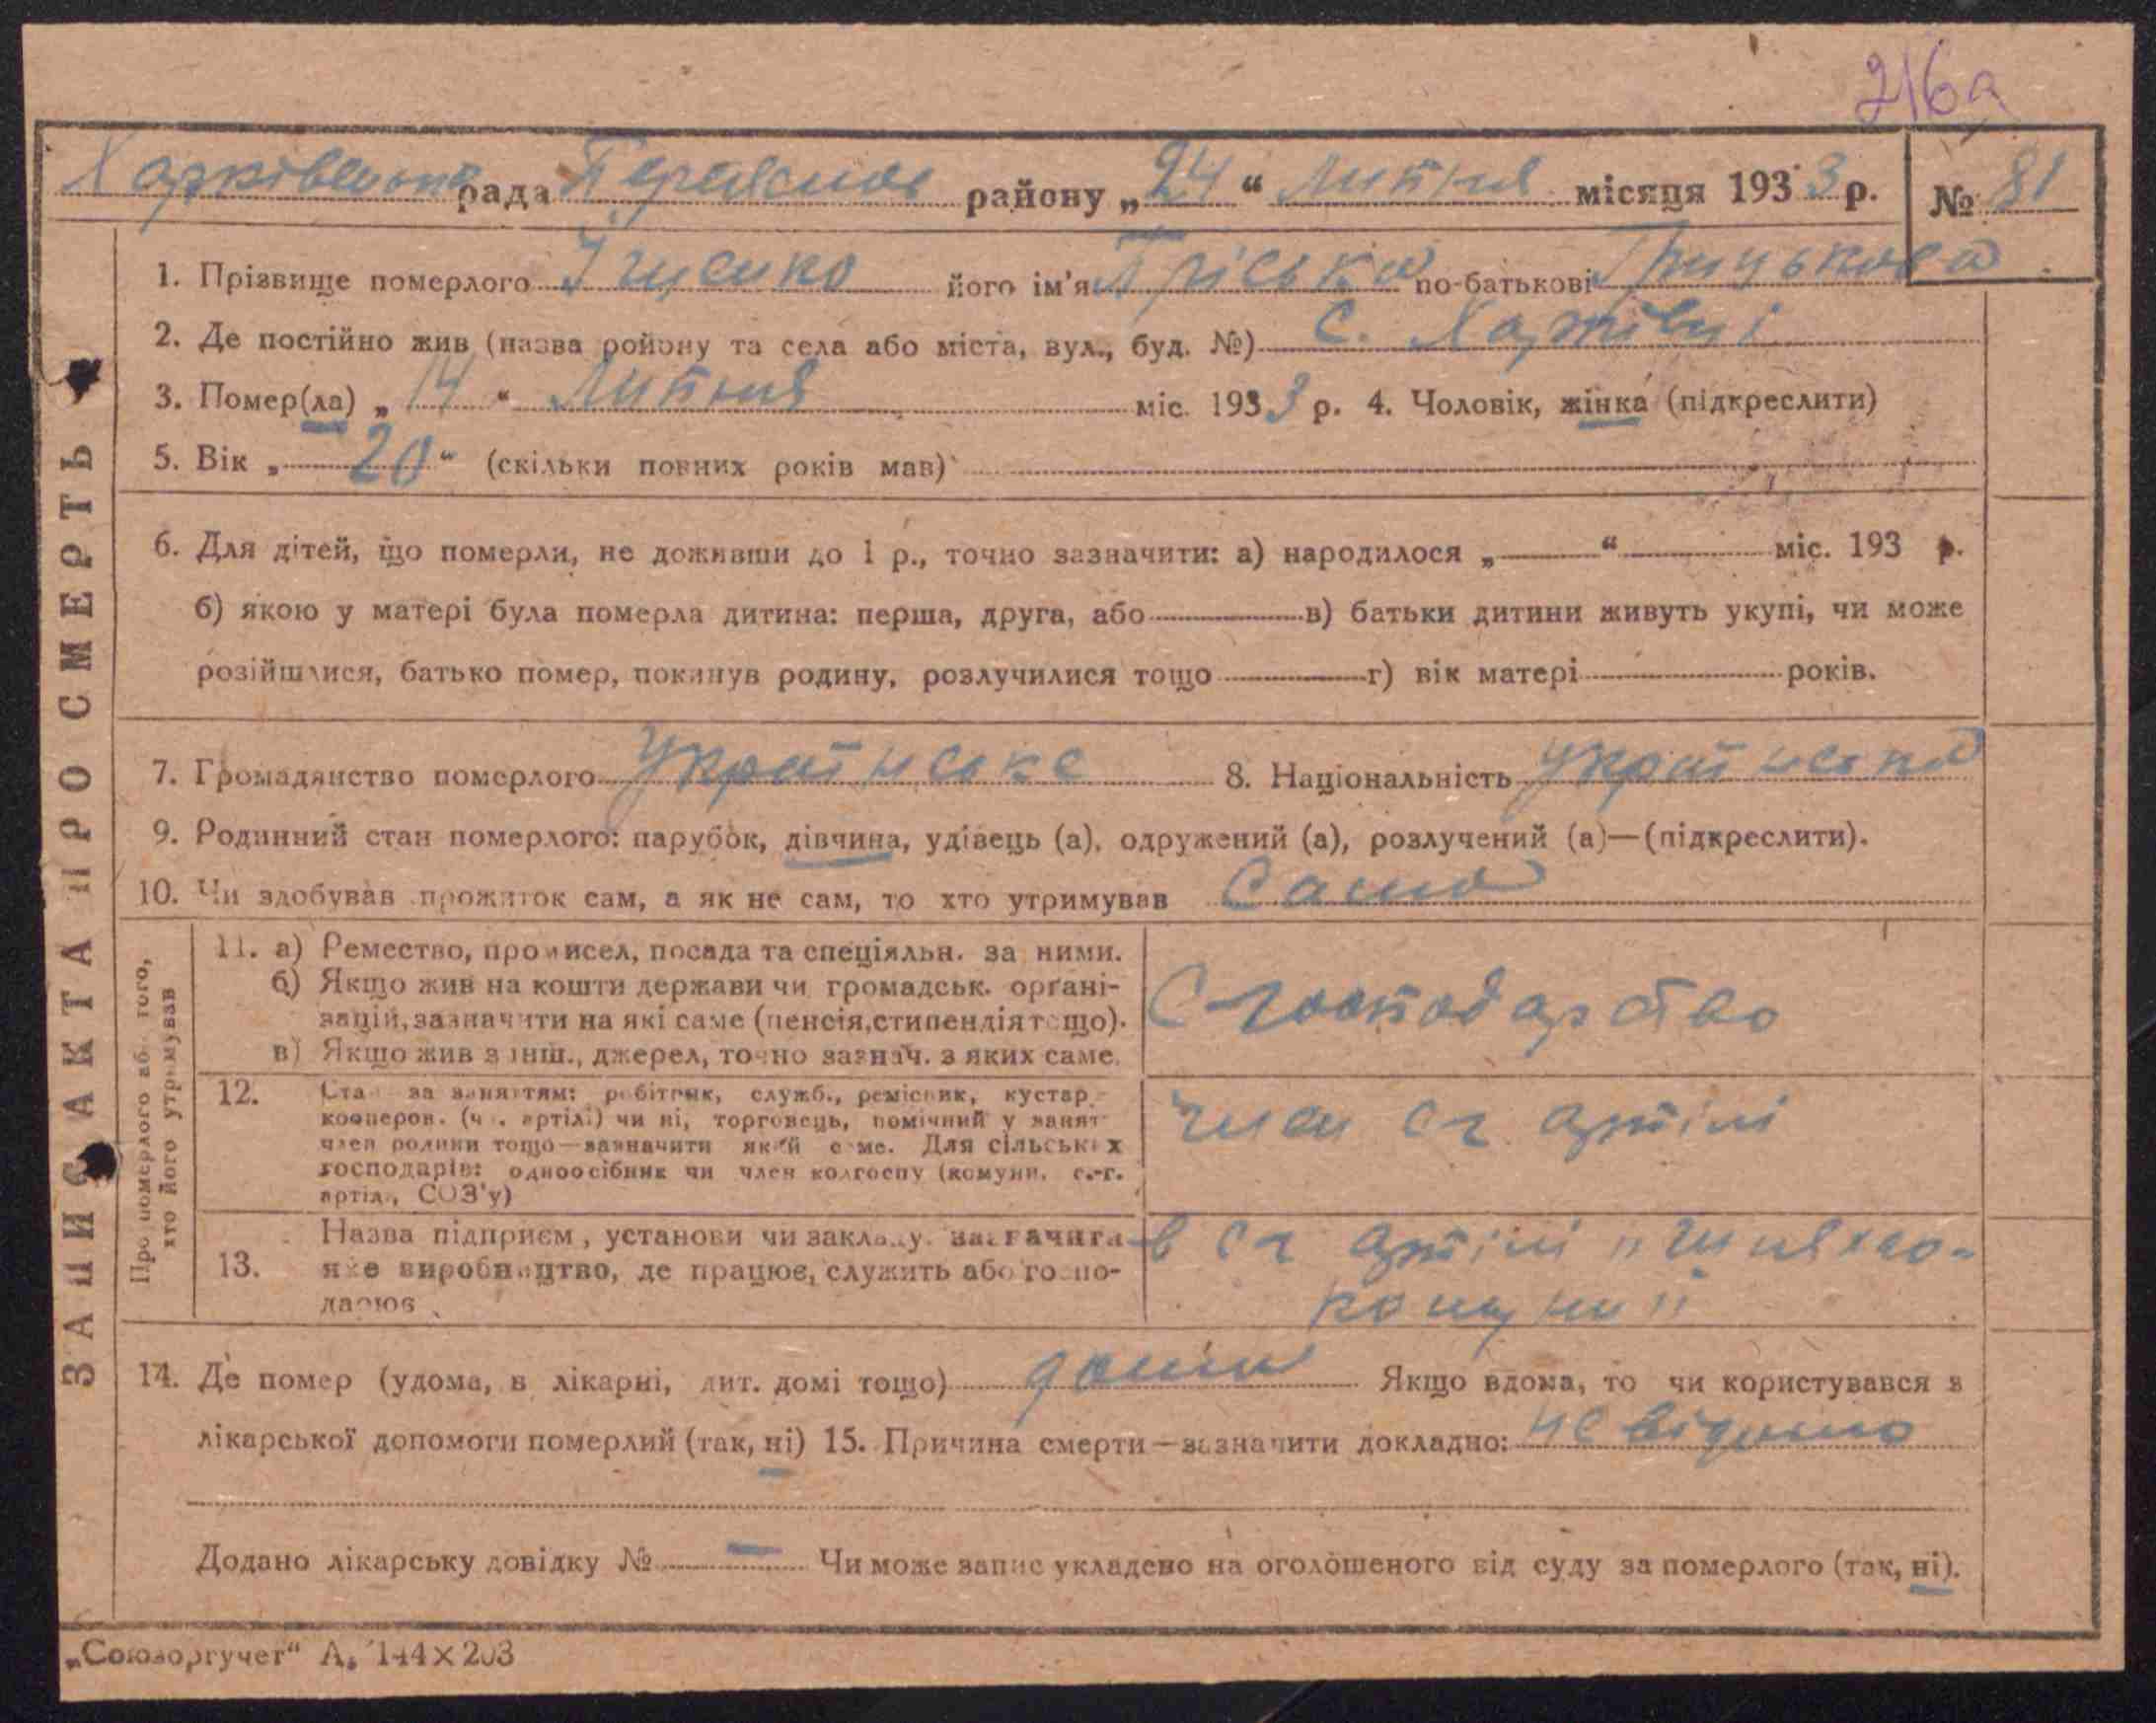 216а
Харківецька рада Переяслав району „24“ Липня місяця 1933 р. № 81
1. Прізвище померлого Іщенко його ім'я Пріська по-батькові Грицькова
2. Де постійно жив (назва ройону та села або міста, вул., буд. №) С. Харківці
3. Помер(ла) „14“ Липня міс. 1933 р. 4. Чоловік, жінка (підкреслити)
5. Вік „20“ (скільки повних років мав)
6. Для дітей, що померли, не доживши до 1 р., точно зазначити: а) народилося „ “ міс. 193 р.
б) якою у матері була померла дитина: перша, друга, або в) батьки дитини живуть укупі, чи може
розійшлися, батько помер, покинув родину, розлучилися тощо г) вік матері років.
7. Громадянство померлого українське 8. Національність українка
9. Родинний стан померлого: парубок, дівчина, удівець (а), одружений (а), розлучений (а)—(підкреслити).
10. Чи здобував прожиток сам, а як не сам, то хто утримував Сама
Про померлого або того,
хто його утримував
11. а) Ремество, промисел, посада та спеціяльн. за ними.
б) Якщо жив на кошти держави чи громадськ. орґані-
зацій, зазначити на які саме (пенсія, стипендія тощо).
в) Якщо жив з інш., джерел, точно зазнач. з яких саме.
С-господарство
12. Стан за заняттям: робітник, служб., ремісник, кустар
кооперов. (ч. артілі) чи ні, торговець, помічний у занят
член родини тощо—зазначити який саме. Для сільських
господарів: одноосібник чи член колгоспу (комуни, с.-г.
артіл., СОЗ'у)
член сг артілі
13. Назва підприєм, установи чи закладу зазначити
яке виробництво, де працює, служить або госпо-
дарює
в сг артілі „Шлях до-
комунії“
14. Де помер (удома, в лікарні, дит. домі тощо) дома Якщо вдома, то чи користувався з
лікарської допомоги померлий (так, ні) 15. Причина смерти—зазначити докладно: не відомо
Додано лікарську довідку № — Чи може запис укладено на оголошеного від суду за померлого (так, ні).
ЗАПИС АКТА ПРО СМЕРТЬ
„Союзоргучет“ А. 144×203